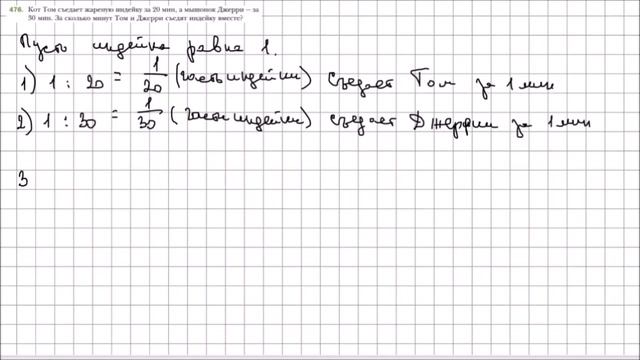 476. Кот Том съедает жареную индейку за 20 мин, а мышонок Джерри – за
30 мин. За сколько минут Том и Джерри съедят индейку вместе?
Пусть индейка равна 1.
1) 1 : 20 = 1/20 (часть индейки) съедает Том за 1 мин
2) 1 : 30 = 1/30 (часть индейки) съедает Джерри за 1 мин
3